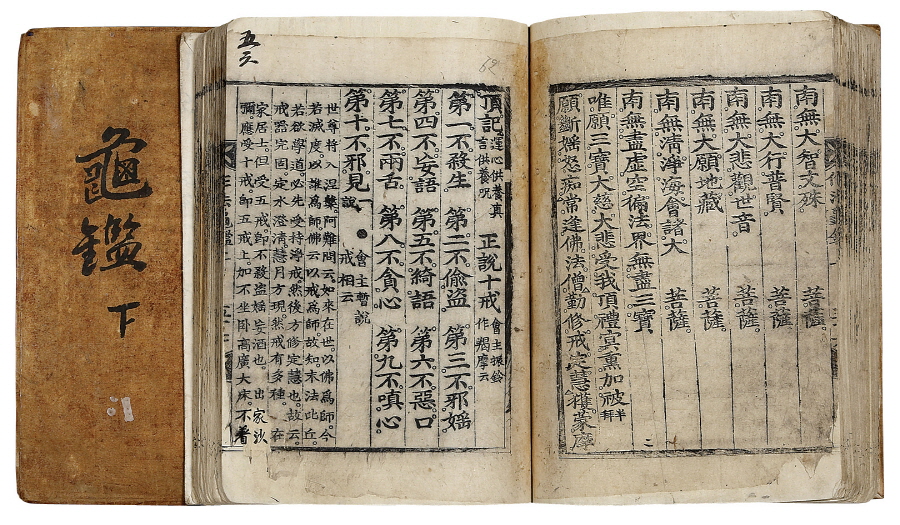 南無大智文殊 菩薩
南無大行普賢 菩薩
南無大悲觀世音 菩薩
南無大願地藏 菩薩
南無淸淨海會諸大 菩薩
南無盡虛空徧法界無盡三寶
唯願三寶大慈大悲受我頂禮冥熏加被
願斷媱怒痴常逢佛法僧勤修戒定慧獲蒙摩
二
62
五六
頂記 運心供養眞言供養呪 正說十戒 會主振鈴作羯摩云
第一不殺生 第二不偷盜 第三不邪婬
第四不妄語 第五不綺語 第六不惡口
第七不兩舌 第八不貪心 第九不嗔心
第十不邪見 說一 會主暫說戒相云
世尊將入涅槃阿難問云如來在世以佛爲師今
若滅度以誰爲師佛云以戒爲師故知末法比丘
若欲學道必先受持淨戒然後方修定慧也故云
戒器完固定水澄淸慧月方現然戒有多種在
家居士但受五戒卽不殺盜婬妄酒也 出家沙
彌應受十戒卽五戒上加不坐臥高廣大床不着
龜鑑 下